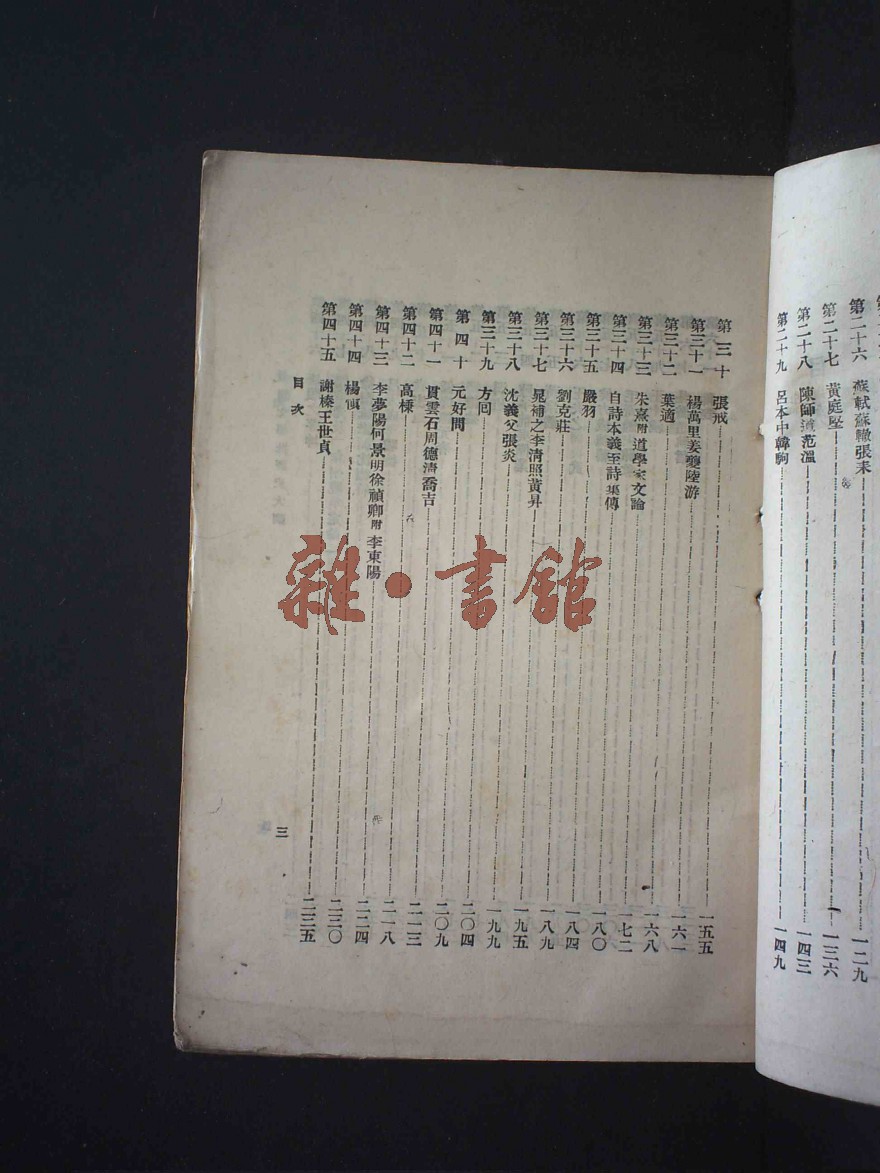 第二十六 蘇軾蘇轍張耒 一二九
第二十七 黃庭堅 一三六
第二十八 陳師道范溫 一四三
第二十九 呂本中韓駒 一四九
第三十 張戒 一五五
第三十一 楊萬里姜夔陸游 一六一
第三十二 葉適 一六八
第三十三 朱熹附道學家文論 一七二
第三十四 自詩本義至詩集傳 一八〇
第三十五 嚴羽 一八四
第三十六 劉克莊 一八九
第三十七 晁補之李清照黃昇 一九五
第三十八 沈義父張炎 一九九
第三十九 方回 二〇四
第四十 元好問 二〇九
第四十一 貫雲石周德清喬吉 二一三
第四十二 高棅 二一八
第四十三 李夢陽何景明徐禎卿附李東陽 二二四
第四十四 楊愼 二三〇
第四十五 謝榛王世貞 二三五
目次
三
雜·書館